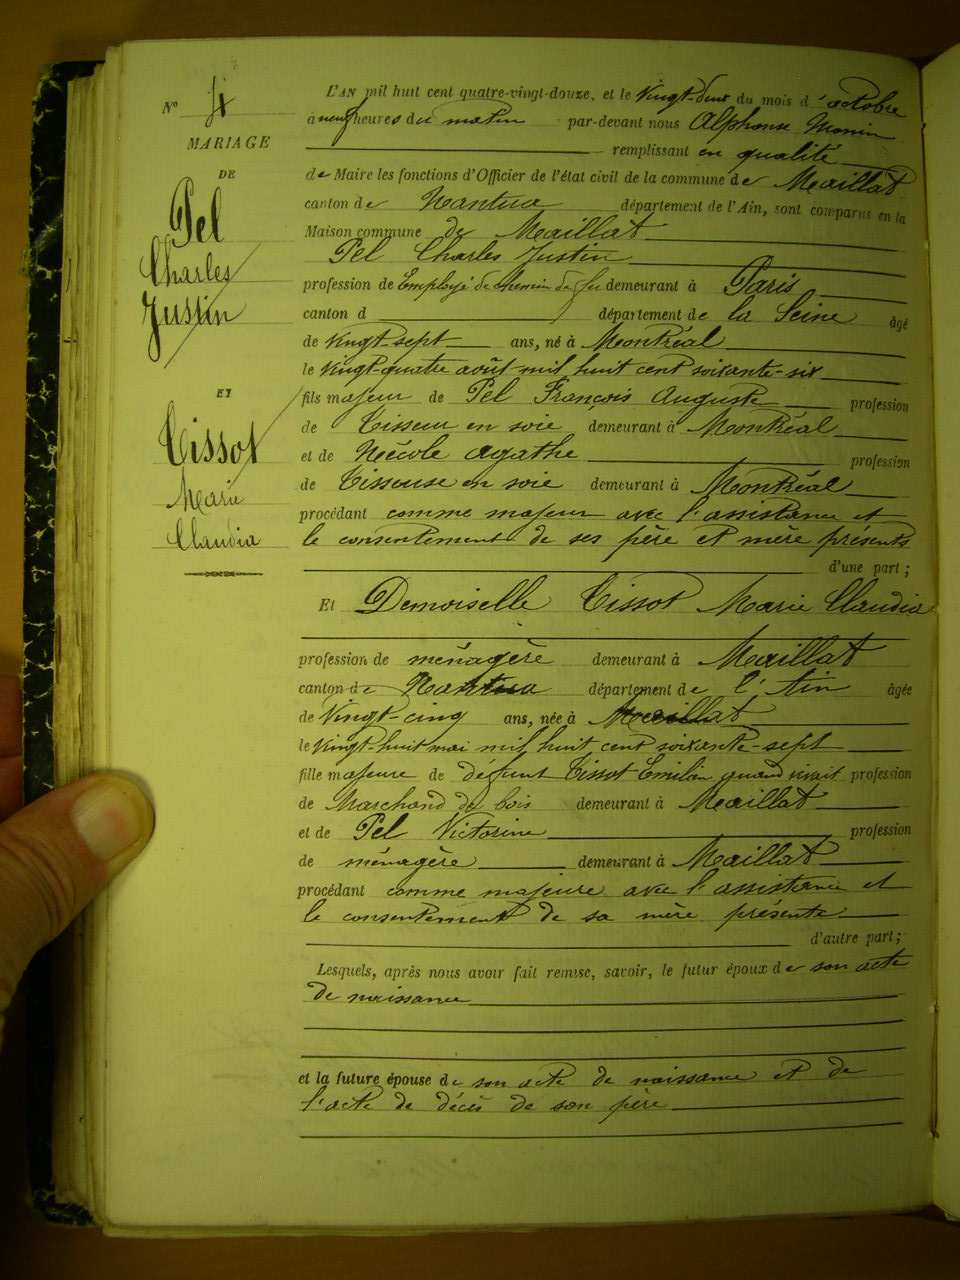 N° 4
MARIAGE
DE
Pel
Charles
Justin
ET
Tissot
Marie
Claudia
L'AN mil huit cent quatre-vingt-douze, et le Vingt-deux du mois d'octobre
à neuf heures du matin par-devant nous Alphonse Monin
remplissant en qualité
de Maire les fonctions d'Officier de l'état civil de la commune de Maillat
canton de Nantua département de l'Ain, sont comparus en la
Maison commune de Maillat
Pel Charles Justin
profession de Employé de chemin de fer demeurant à Paris
canton d département de la Seine âgé
de vingt sept ans, né à Montréal
le vingt-quatre août mil huit cent soixante-six
fils majeur de Pel François Auguste profession
de Tisseur en soie demeurant à Montréal
et de Nécole Agathe profession
de Tisseuse en soie demeurant à Montréal
procédant comme majeur avec l'assistance et
le consentement de ses père et mère présents
d'une part;
Et Demoiselle Tissot Marie Claudia
profession de ménagère demeurant à Maillat
canton de Nantua département de l'Ain âgée
de Vingt-cinq ans, née à Maillat
le vingt-huit mai mil huit cent soixante-sept
fille majeure de défunt Tissot Emilien quand vivait profession
de Marchand de bois demeurant à Maillat
et de Pel Victorine profession
de ménagère demeurant à Maillat
procédant comme majeure avec l'assistance et
le consentement de sa mère présente
d'autre part;
Lesquels, après nous avoir fait remise, savoir, le futur époux de son acte
de naissance
et la future épouse de son acte de naissance et de
l'acte de décès de son père